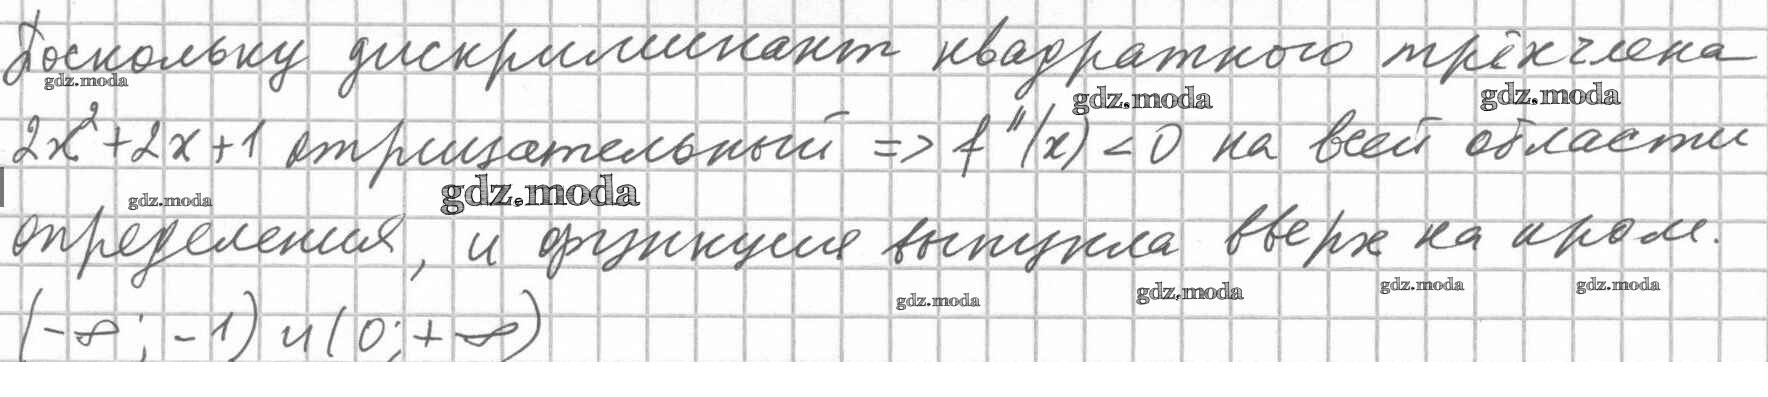 Поскольку дискриминант квадратного трёхчлена
gdz.moda
gdz.moda
gdz.moda
2x²+2x+1 отрицательный => f''(x) < 0 на всей области
gdz.moda
gdz.moda
определения, и функция выпукла вверх на пром.
gdz.moda
gdz.moda
gdz.moda
gdz.moda
(-∞; -1) и (0; +∞)